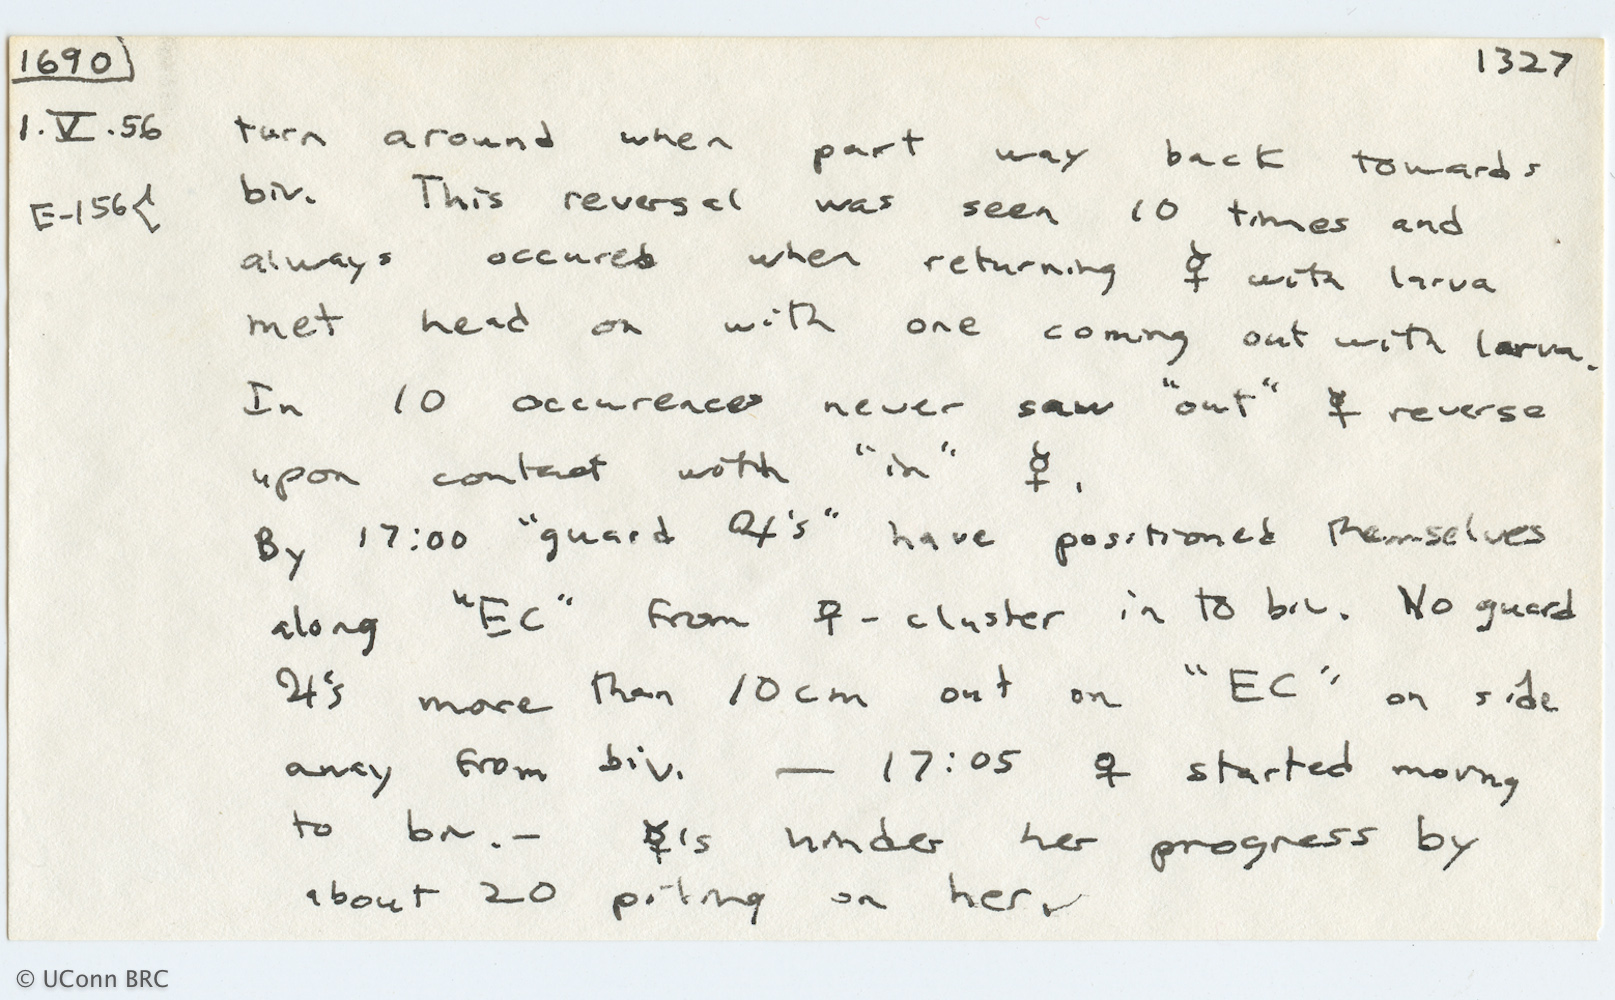 1690 1327
1.V.56 turn around when part way back towards
E-156{ biv. This reversal was seen 10 times and
always occured when returning ☿ with larva
met head on with one coming out with larva.
In 10 occurences never saw "out" ☿ reverse
upon contact with "in" ☿.
By 17:00 "guard ♃'s" have positioned themselves
along "EC" from ♀-cluster in to biv. No guard
♃'s more than 10cm out on "EC" on side
away from biv. — 17:05 ♀ started moving
to biv. — ☿'s hinder her progress by
about 20 piling on her
© UConn BRC